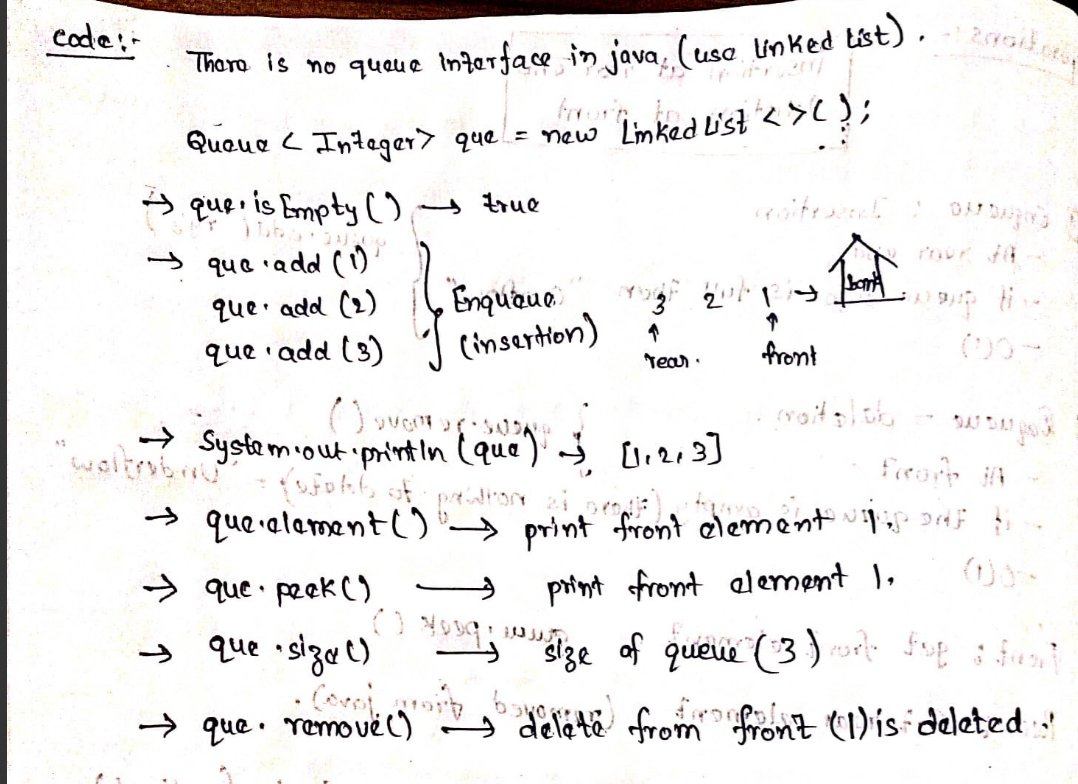 Code:-
There is no queue interface in java, (use linked list).
Queue < Integer> que = new Linked List <>();
→ que.is Empty () → true
→ que.add (1)
que. add (2)
que.add (3)
Enqueue
(insertion)
3 2 1 → bank
↑ ↑
rear. front
→ System.out.println (que) → [1,2,3]
→ que.element() → print front element 1.
→ que.peek() → print front element 1.
→ que.size() → size of queue (3)
→ que. remove() → delete from front (1) is deleted